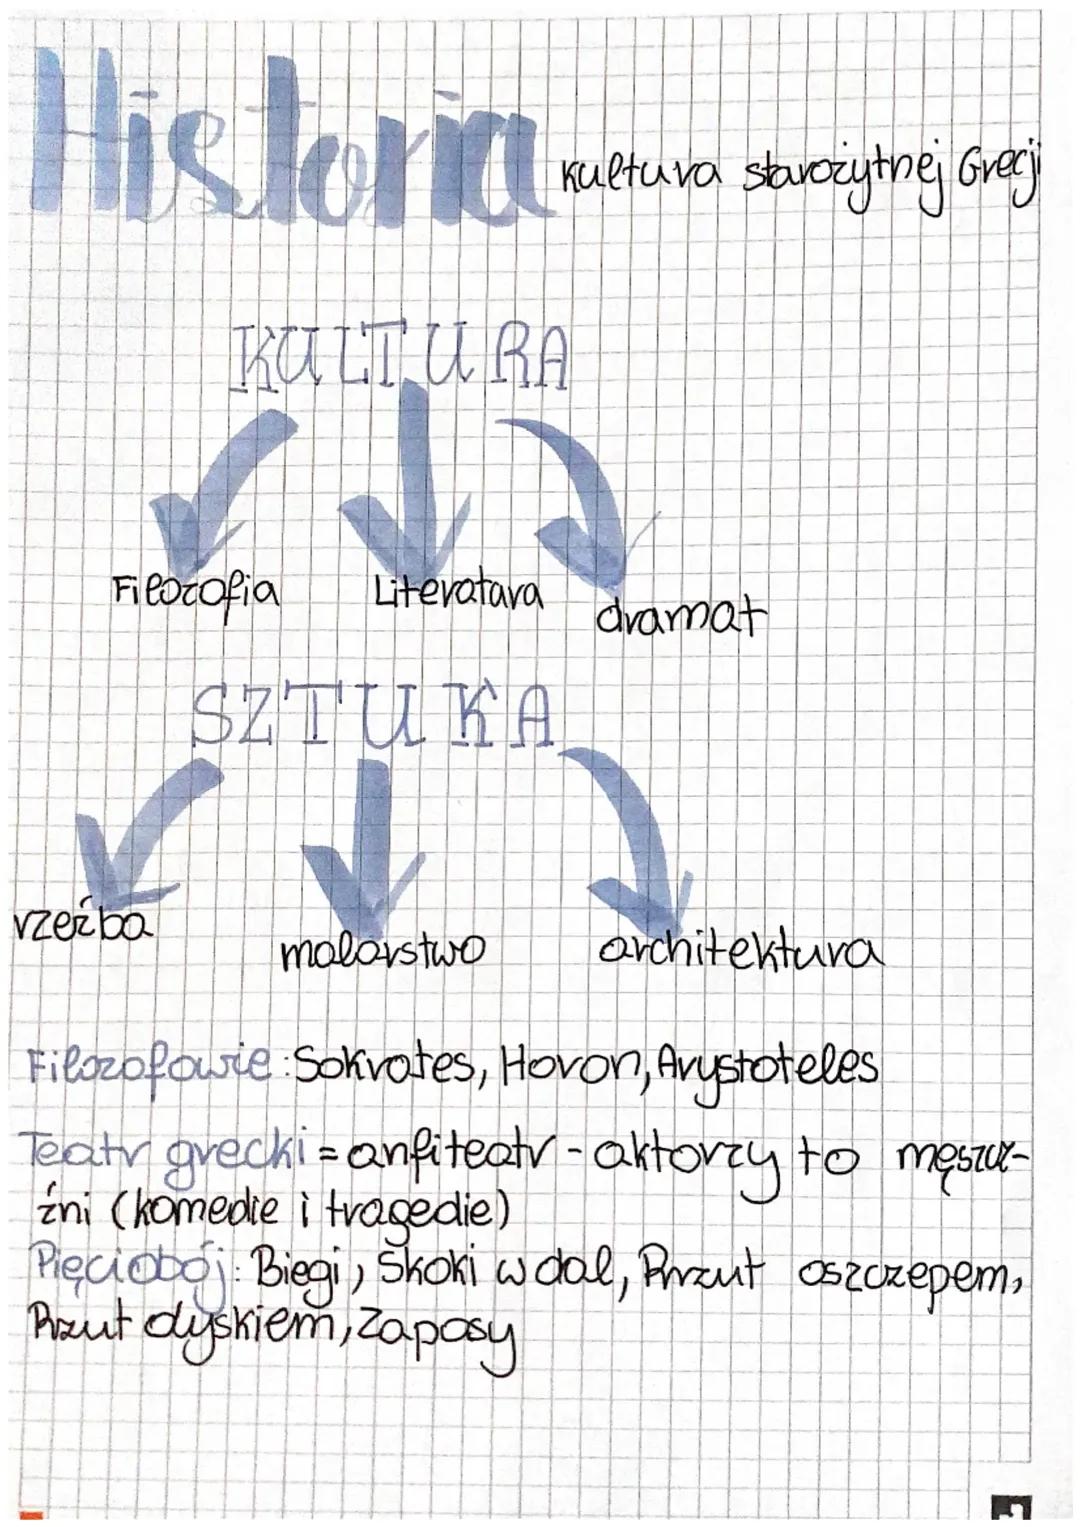 Historia kultura starożytnej Grecji
KULTURA
Filozofia Literatura dramat
SZTUKA
rzeźba malarstwo architektura
Filozofowie: Sokrates, Horon, Arystoteles
Teatr grecki = anfiteatr - aktorzy to męszcz-
źni (komedie i tragedie)
Pięciobój: Biegi, Skoki w dal, Przut oszczepem,
Rzut dyskiem, Zapasy